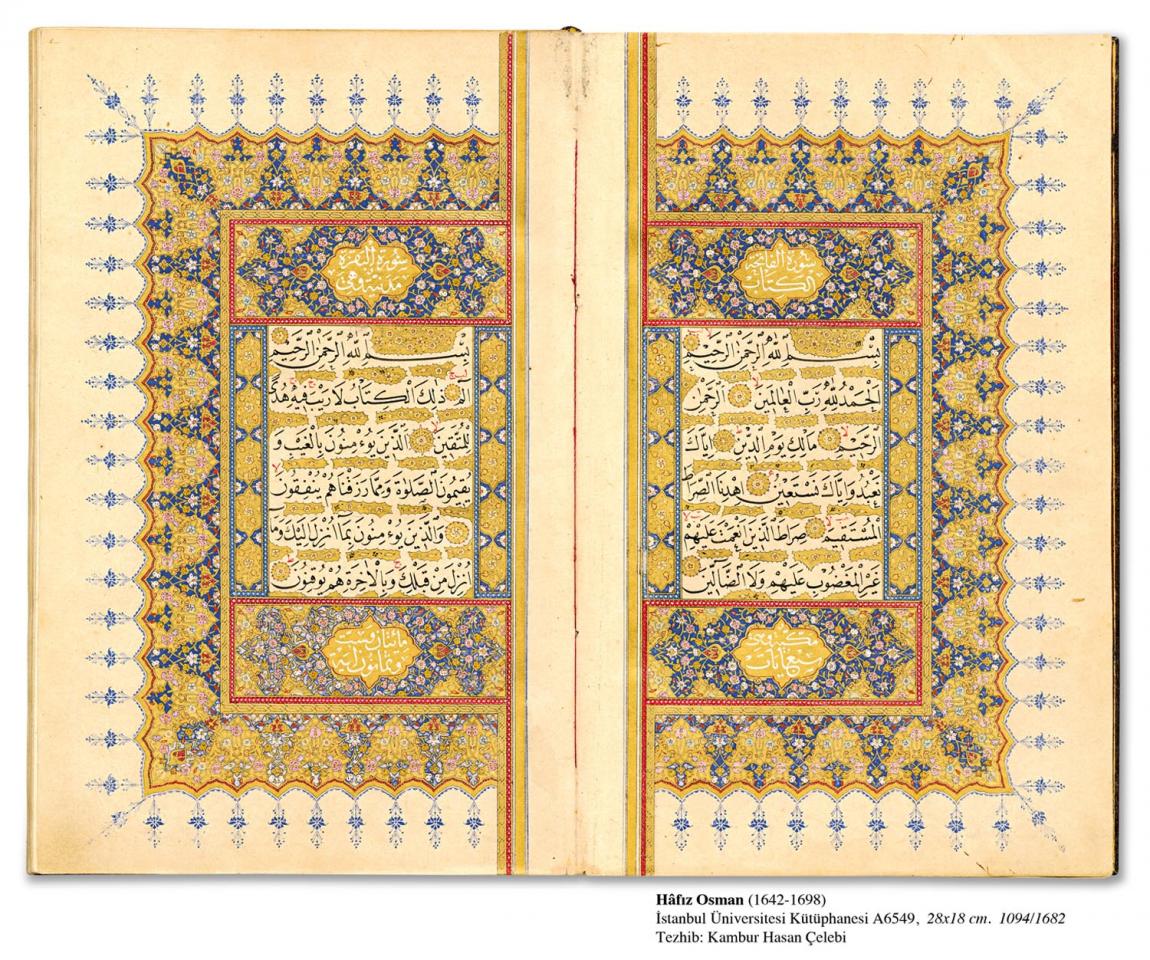 سورة الفاتحة
الكتاب
بِسْمِ اللهِ الرَّحْمٰنِ الرَّحِيمِ
اَلْحَمْدُ لِلّٰهِ رَبِّ الْعَالَمِينَ اَلرَّحْمٰنِ
الرَّحِيمِ مَالِكِ يَوْمِ الدِّينِ اِيَّاكَ
نَعْبُدُ وَاِيَّاكَ نَسْتَعِينُ اِهْدِنَا الصِّرَاطَ
الْمُسْتَقِيمَ صِرَاطَ الَّذِينَ اَنْعَمْتَ عَلَيْهِمْ
غَيْرِ الْمَغْضُوبِ عَلَيْهِمْ وَلَا الضَّالِّينَ
مكية وهي
سبع آيات
سورة البقرة
مدنية وهي
بِسْمِ اللهِ الرَّحْمٰنِ الرَّحِيمِ
الٓمٓ ذٰلِكَ الْكِتَابُ لَا رَيْبَ فِيهِ هُدًى
لِلْمُتَّقِينَ اَلَّذِينَ يُؤْمِنُونَ بِالْغَيْبِ وَ
يُقِيمُونَ الصَّلٰوةَ وَمِمَّا رَزَقْنَاهُمْ يُنْفِقُونَ
وَالَّذِينَ يُؤْمِنُونَ بِمَا اُنْزِلَ اِلَيْكَ وَمَا
اُنْزِلَ مِنْ قَبْلِكَ وَبِالْاٰخِرَةِ هُمْ يُوقِنُونَ
مائتان وست
وثمانون آية
Hâfız Osman (1642-1698)
İstanbul Üniversitesi Kütüphanesi A6549, 28x18 cm. 1094/1682
Tezhib: Kambur Hasan Çelebi